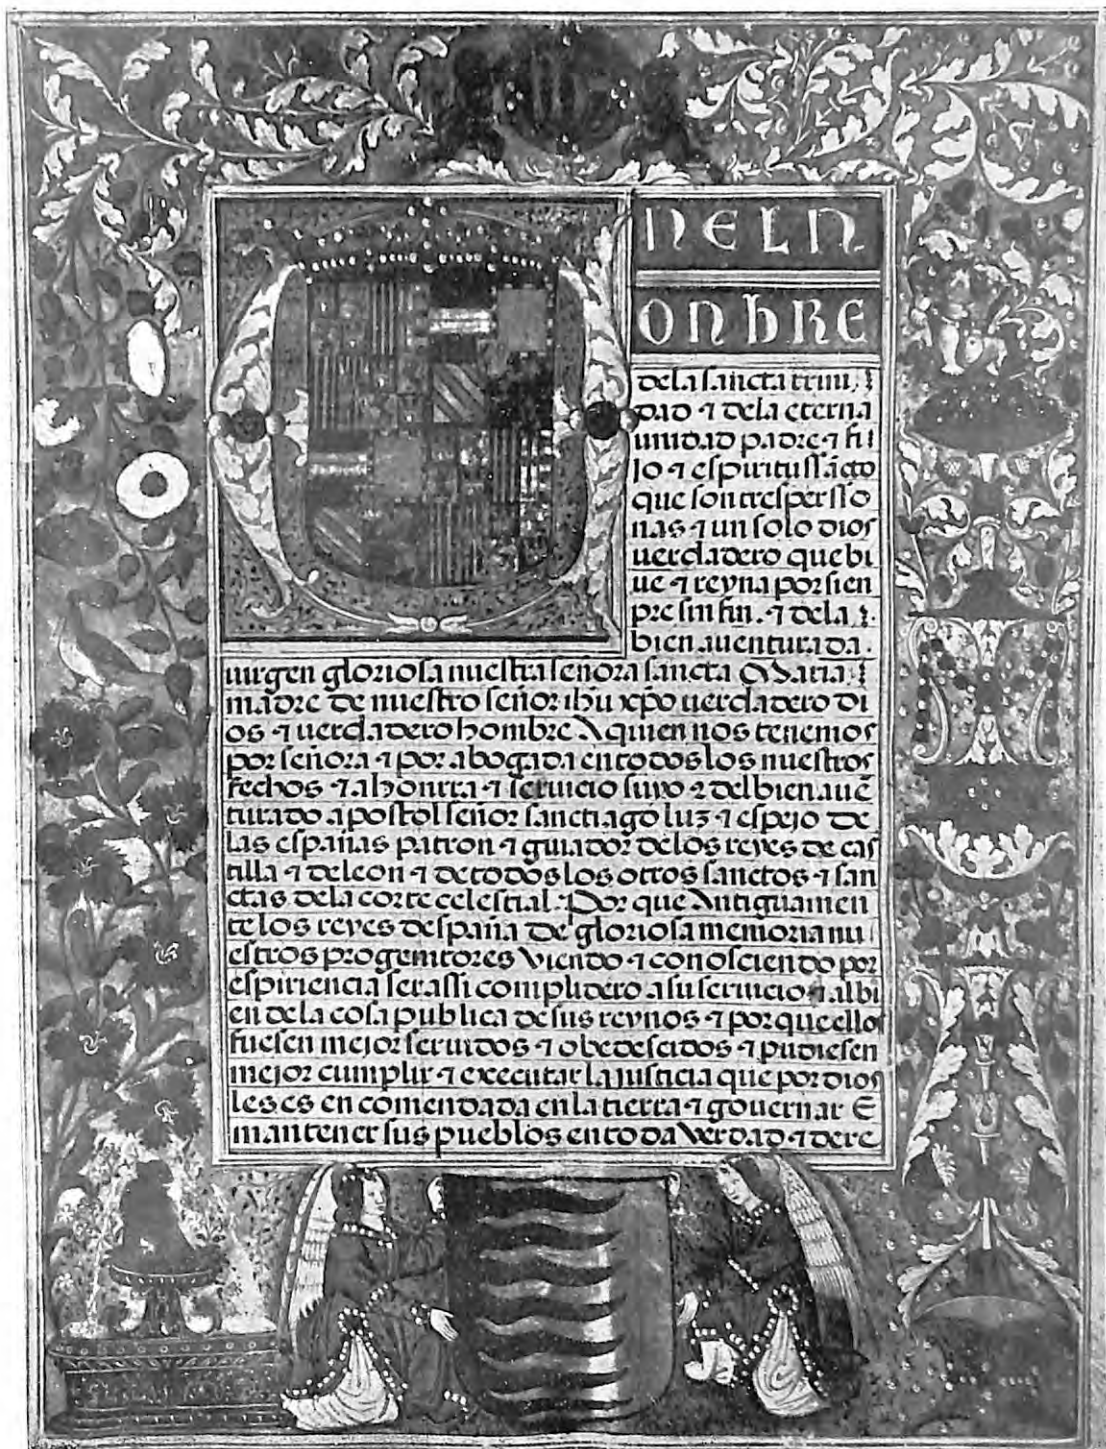 NELN
ONbRE
dela sancta trini,
dad ⁊ dela eterna
unidad padre ⁊ fi
jo ⁊ espiritu ssãcto
que son tres persso
nas ⁊ un solo dios
uerdadero que bi
ue ⁊ reyna por sien
pre sin fin. ⁊ dela
bien auenturada.
uirgen gloriosa nuestra señora sancta Maria
madre de nuestro señor ihũ xp̃o uerdadero di
os ⁊ uerdadero hombre A quien nos tenemos
por señora ⁊ por abogada en todos los nuestros
fechos ⁊ a honrra ⁊ seruicio suyo ⁊ del bien auẽ
turado apostol señor sanctiago luz ⁊ espejo de
las españas patron ⁊ guiador delos reyes de cas
tilla ⁊ de leon ⁊ de todos los otros sanctos ⁊ san
ctas dela corte celestial. Por que Antiguamen
te los reyes despaña de gloriosa memoria nu
estros progenitores Viendo ⁊ conosciendo por
espiriencia ser assi complidero a su seruicio ⁊ al bi
en dela cosa publica de sus reynos ⁊ por que ellos
fuesen mejor seruidos ⁊ obedescidos ⁊ pudiesen
mejor cumplir ⁊ executar la iusticia que por dios
les es en comendada en la tierra ⁊ gouernar E
mantener sus pueblos en toda Verdad ⁊ dere